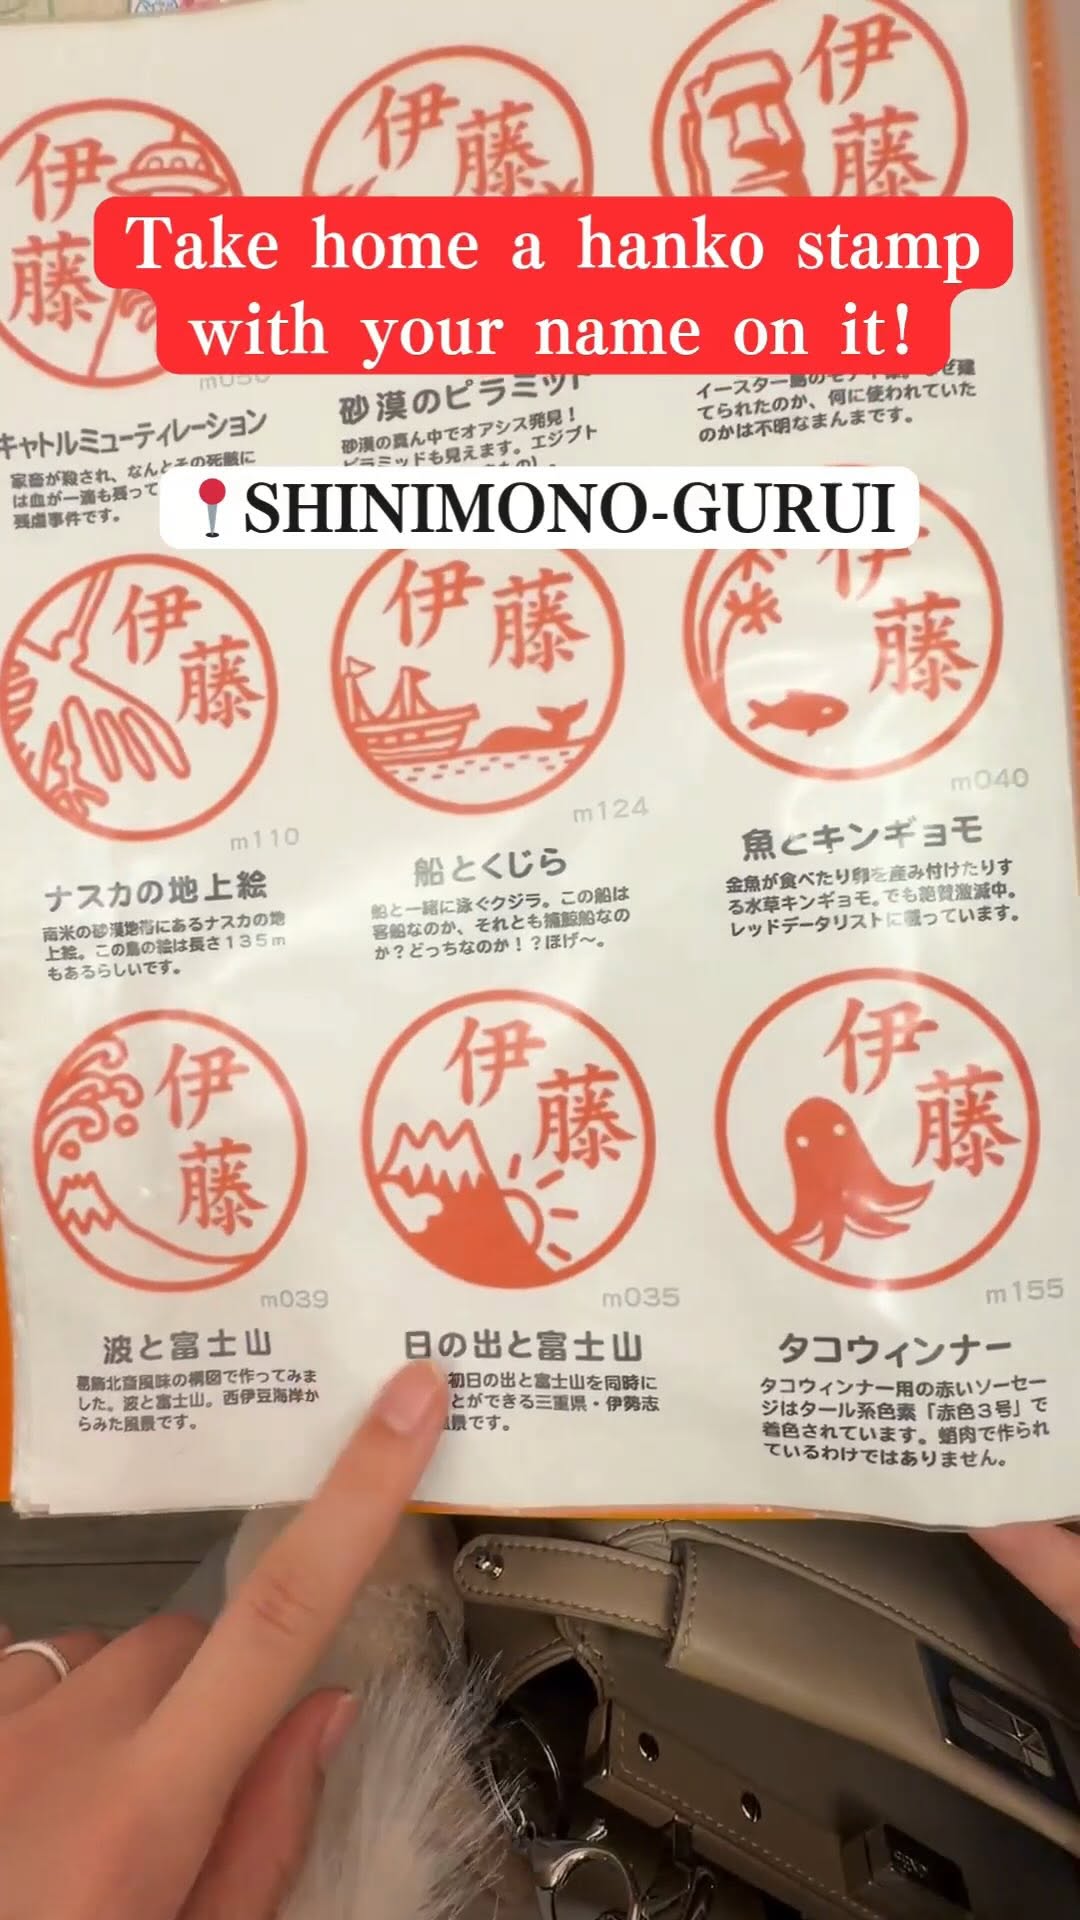 伊藤
伊藤
伊藤
Take home a hanko stamp
with your name on it!
キャトルミューティレーション
家畜が殺され、なんとその死骸に
は血が一滴も残って
残虐事件です。
砂漠のピラミッド
砂漠の真ん中でオアシス発見！
ピラミッドも見えます。エジプト
てられたのか、何に使われていた
のかは不明なまんまです。
📍SHINIMONO-GURUI
伊藤
m110
ナスカの地上絵
南米の砂漠地帯にあるナスカの地
上絵。この鳥の絵は長さ135m
もあるらしいです。
伊藤
m124
船とくじら
船と一緒に泳ぐクジラ。この船は
客船なのか、それとも捕鯨船なの
か？どっちなのか！？ほげ〜。
伊藤
m040
魚とキンギョモ
金魚が食べたり卵を産み付けたりす
る水草キンギョモ。でも絶賛激減中。
レッドデータリストに載っています。
伊藤
m039
波と富士山
葛飾北斎風味の構図で作ってみま
した。波と富士山。西伊豆海岸か
らみた風景です。
伊藤
m035
日の出と富士山
初日の出と富士山を同時に
とができる三重県・伊勢志
景です。
伊藤
m155
タコウィンナー
タコウィンナー用の赤いソーセー
ジはタール系色素「赤色3号」で
着色されています。蛸肉で作られ
ているわけではありません。